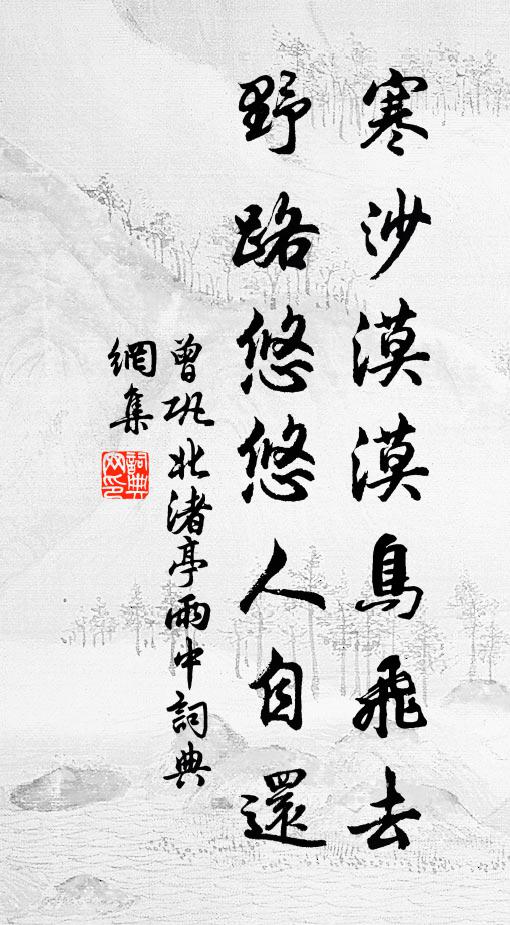 寒沙漠漠鳥飛去
野路悠悠人自還
曾巩北渚亭雨中詞典
網集
詞典
网印